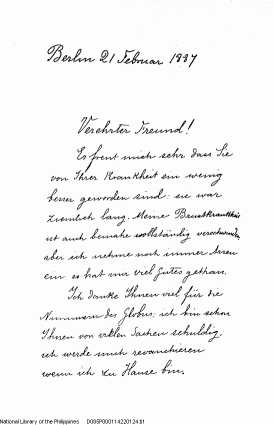 Berlin 21 Februar 1887
Verehrter Freund!
Es freut mich sehr dass Sie
von Ihrer Krankheit ein wenig
besser geworden sind: sie war
ziemlich lang. Meine Brustkrankheit
ist auch beinahe vollständig verschwunden
aber ich nehme noch immer Arsen
ein es hat mir viel Gutes gethan.
Ich danke Ihnen viel für die
Nummern des Globus; ich bin schon
Ihnen von vielen Sachen schuldig
ich werde mich revanchieren
wenn ich zu Hause bin.
National Library of the Philippines